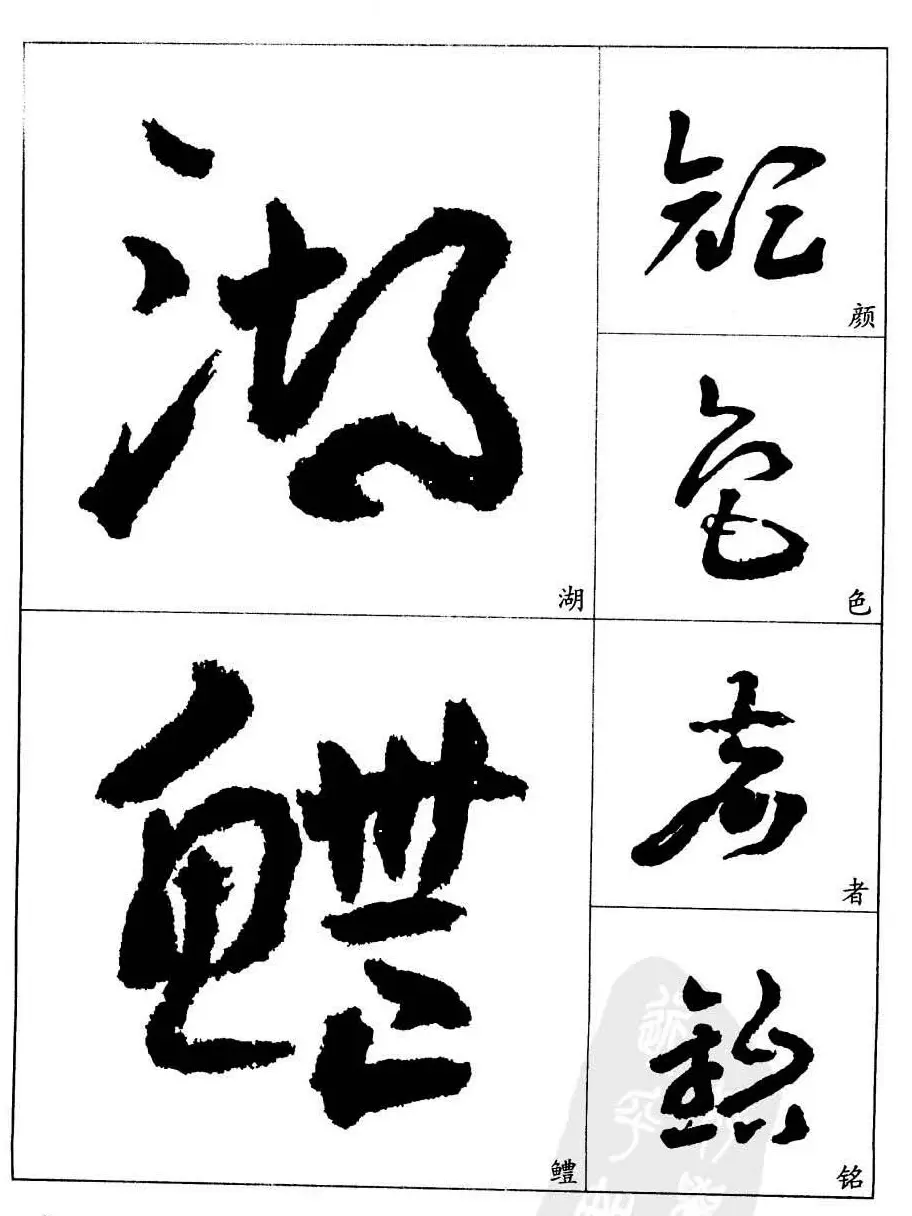 湖
颜
色
者
鳢
铭